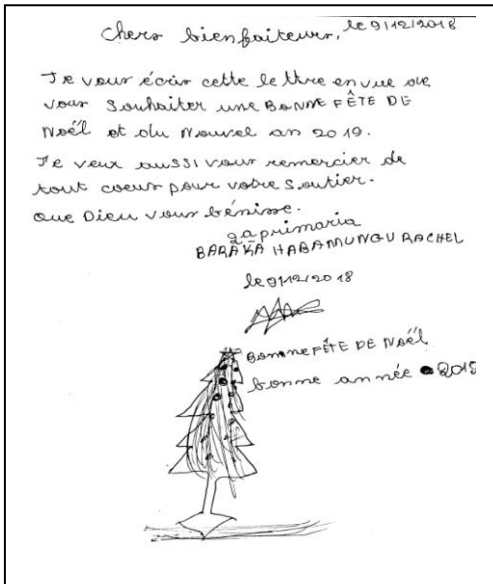 chers bienfaiteurs, le 9/12/2018
Je vous écris cette lettre en vue de
vous souhaiter une BONNE FÊTE DE
Noël et du Nouvel an 2019.
Je veux aussi vous remercier de
tout coeur pour votre soutier.
que Dieu vous bénisse.
2a primaria
BARAKA HABAMUNGU RACHEL
le 9/12/2018
Bonne FÊTE DE Noël
bonne année